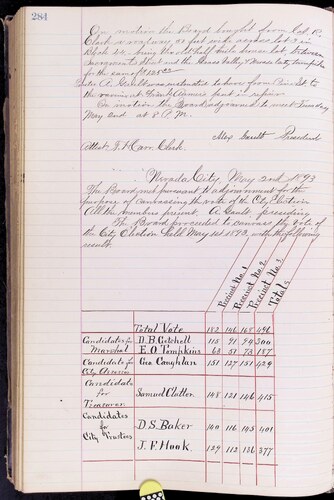 284
On motion the Board bought from Col. P.
Clark
Block 44. being No. 1 half
Sacramento Street and the Grass Valley & Nevada City turnpike
for the sum of
A. Gault was instructed to have from Pine St. to
the
On motion the Board adjourned to meet Tuesday
May 2nd at 8 P.M.
Alex Gault President
Attest J. F. Carr. Clerk.
Nevada City May 2nd 1893
The Board met pursuant to adjournment for the
purpose of canvassing the vote of the City Election
All the members present. A. Gault presiding
The Board proceeded to canvass the vote of
the City Election held May 1st 1893, with the following
result.
Precinct No. 1
Precinct No. 2
Precinct No. 3
Totals
Total Vote 182 146 168 496
Candidates for D. B. Getchell 115 91 94 300
Marshal E. O. Tompkins 63 51 73 187
Candidate for Geo Caughlan 151 127 151 429
City Assessor
Candidate
for Samuel Clutter 148 121 146 415
Treasurer
Candidates
for D. S. Baker 140 116 145 401
City Trustees
J. F. Hook 129 112 136 377